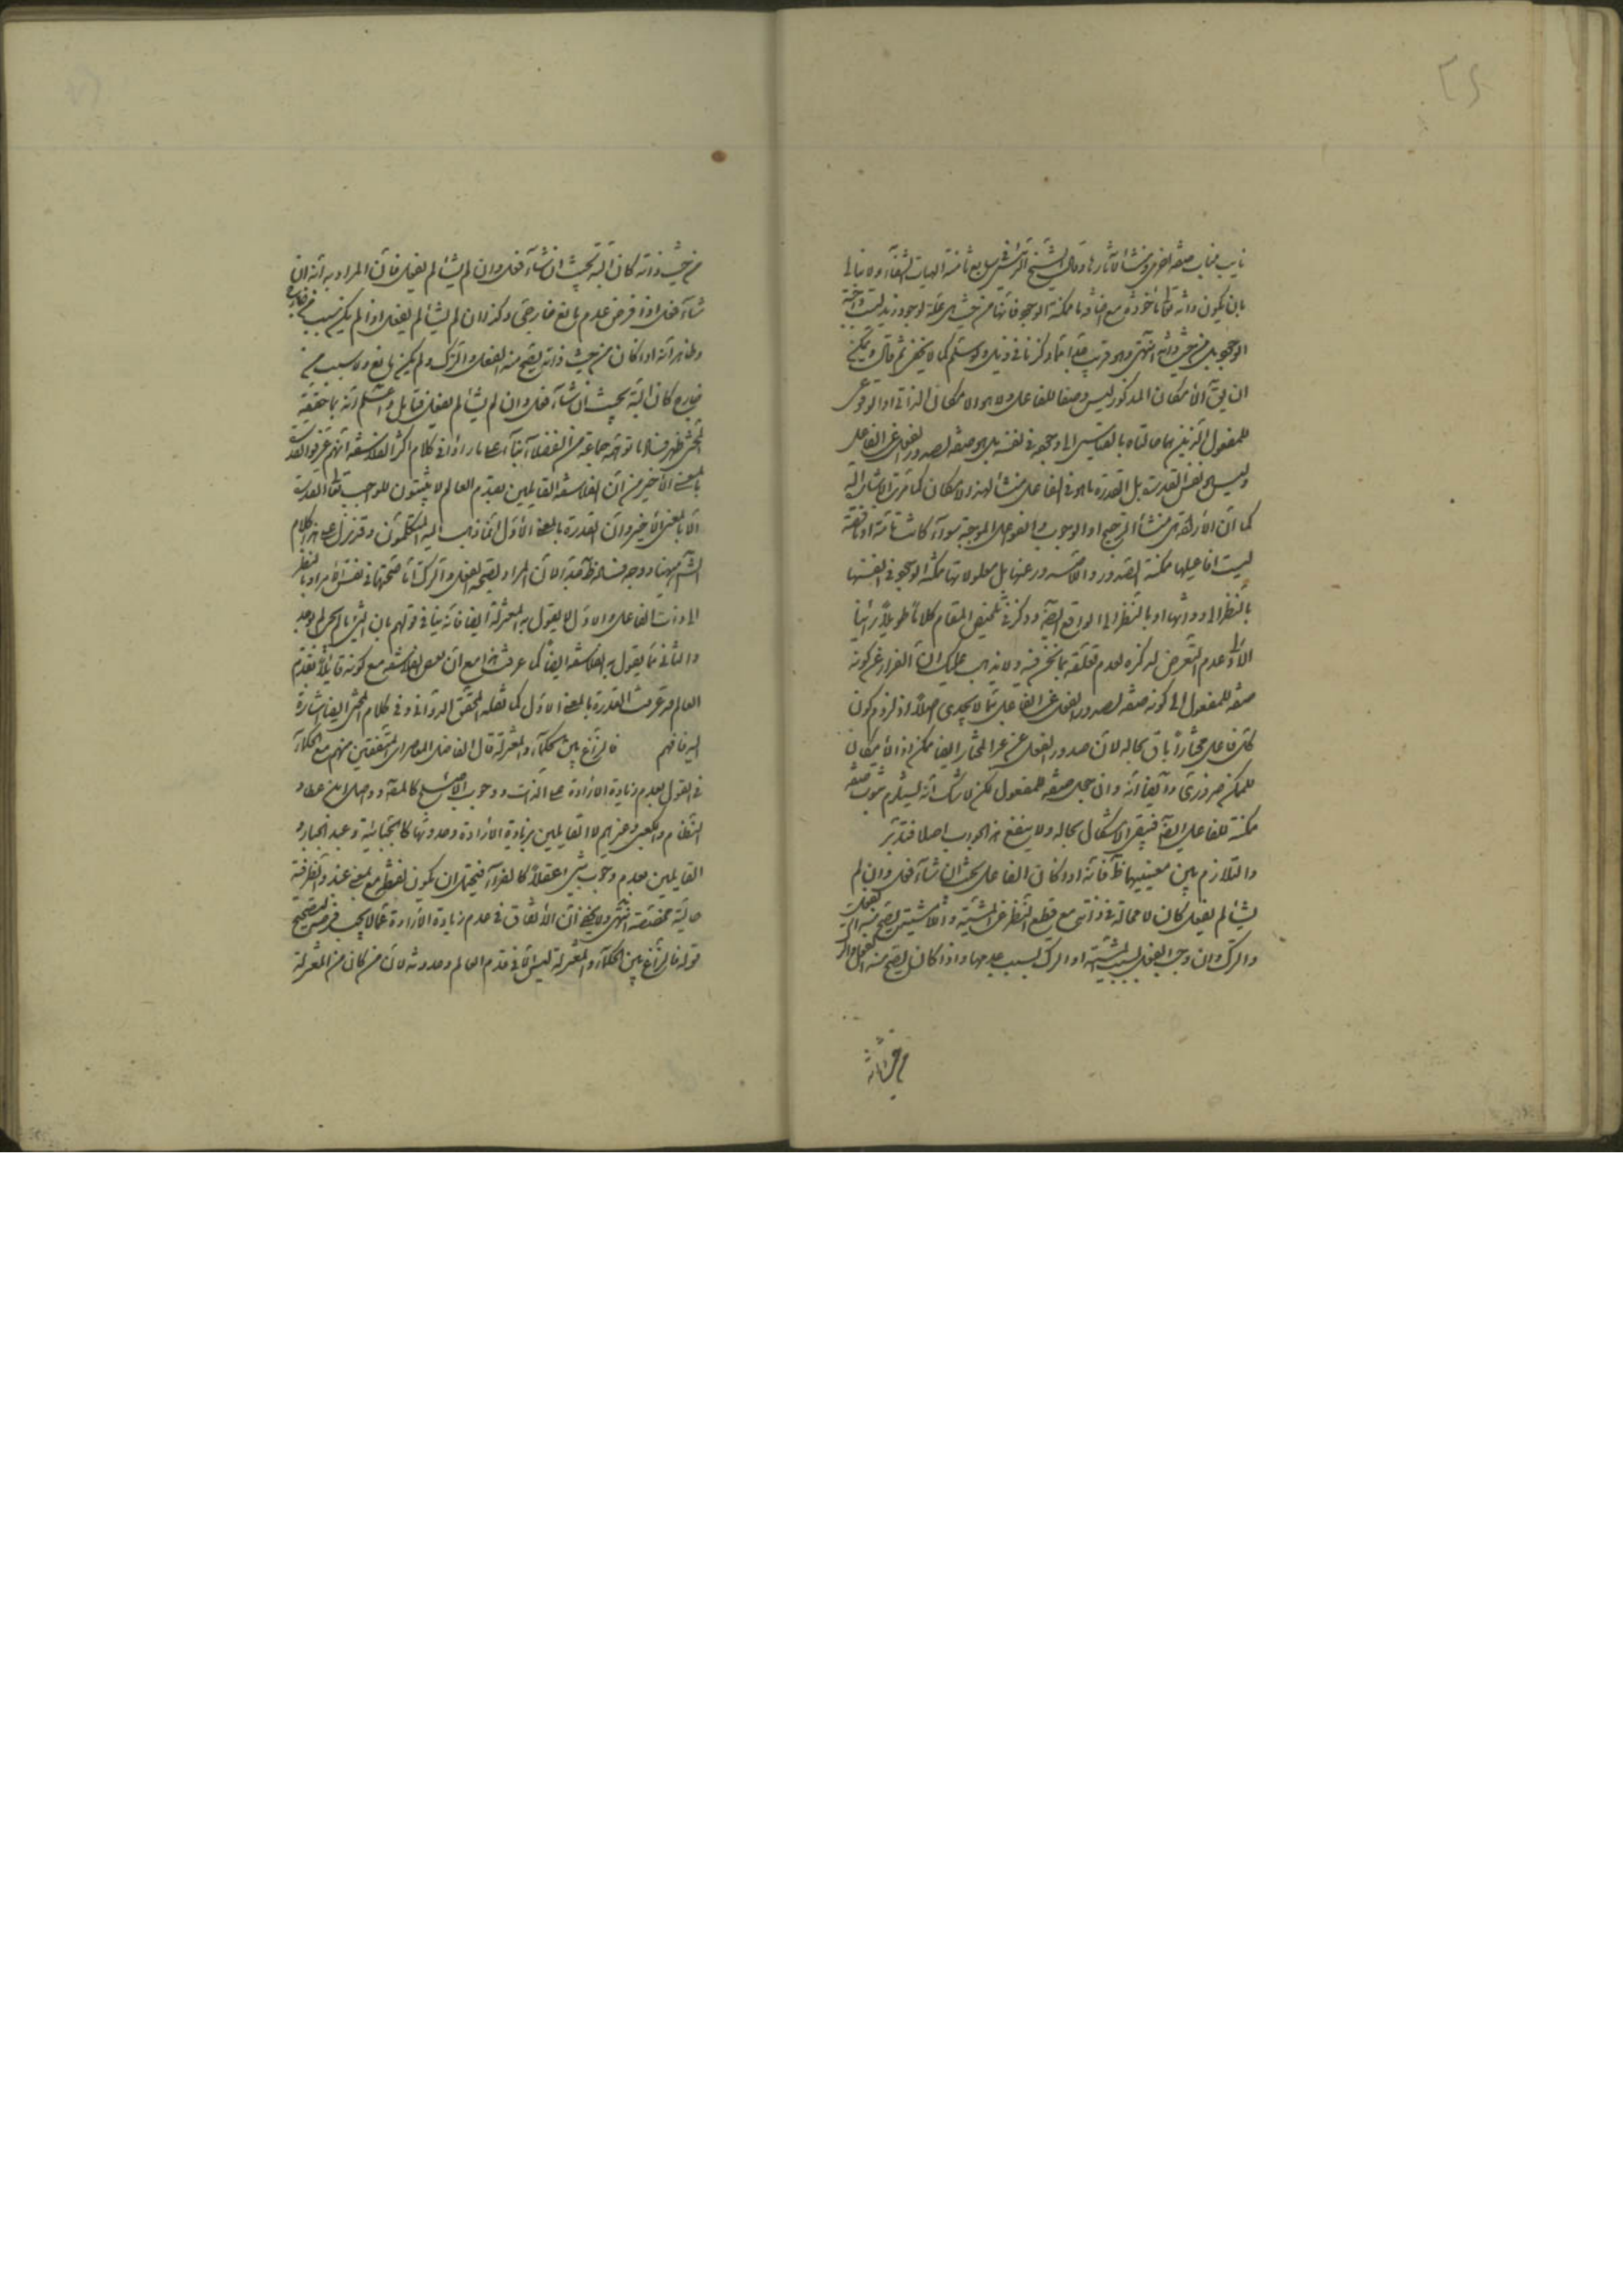 نايب مناب صفة اخرى ومنشأ لآثارها وقال الشيخ الرئيس في سابع ثامنة الهيات الشفاء ولا نبالي
بان يكون ذاته تعالى مأخوذة مع اضافة ما ممكنة الوجود فانها من حيث هي علة لوجود زيد ليست بواجبة
الوجود بل من حيث ذاتها انتهى وهو قريب مما ذكرنا في ذيل ولو سلم كما لا يخفى ثم قال ويمكن
ان يق الامكان المذكور ليس وصفا للفاعل ولا هو الامكان الذاتي او الوقوعي
للمفعول الذين هما حالتاه بالقياس الى وجوده في نفسه بل هو صفة لصدور الفعل عن الفاعل
وليس هو نفس القدرة بل القدرة ما هو في الفاعل منشأ لهذا الامكان كما مرت الاشارة اليه
كما ان الارادة هي منشأ الترجيح او الوجوب والفواعل الموجبة سواء كانت تامة او ناقصة
ليست افاعيلها ممكنة الصدور واللاصدور عنها بل معلولاتها ممكنة الوجود في انفسها
بالنظر الى ذواتها او بالنظر الى الواقع ايضا وذكر في تلخيص المقام كلاما طويلا رأينا
الاولى عدم التعرض لذكره لعدم تعلقه بما نحن فيه ولا يذهب عليك ان الفرار عن كونه
صفة للمفعول الى كونه صفة لصدور الفعل عن الفاعل مما لا يجدي اصلا اذ لزوم كون
كل فاعل مختارا باق بحاله لان صدور الفعل عن غير المختار ايضا ممكن اذ الامكان
للممكن ضروري وايضا انه وان جعل صفة للمفعول لكن لا شك انه يستلزم ثبوت صفة
ممكنة للفاعل ايضا فيبقى الاشكال بحاله ولا ينفع هذا الجواب اصلا فتدبر
والتلازم بين معنييها ظ فانه اذا كان الفاعل بحيث ان شاء فعل وان لم
يشأ لم يفعل كان لا محالة في ذاته مع قطع النظر عن المشية واللامشية يصح منه الفعل
والترك وان وجب الفعل بسبب المشية او الترك بسبب عدمها واذا كان يصح منه الفعل والترك
من حيث ذاته
من حيث ذاته كان البتة بحيث ان شاء فعل وان لم يشأ لم يفعل فان المراد به انه ان
شاء فعل اذا فرض عدم مانع خارجي وكذا ان لم يشأ لم يفعل اذا لم يكن سبب من خارج
وظاهر انه اذا كان من حيث ذاته يصح منه الفعل والترك ولم يكن مانع ولا سبب من
خارج كان البتة بحيث ان شاء فعل وان لم يشأ لم يفعل فتأمل واعلم انه بما حققه
المحشي ظهر فساد ما توهمه جماعة من الفضلاء بناء على ما رأوا في كلام اكثر الفلاسفة انهم عرفوا القدرة
بالمعنى الاخير من ان الفلاسفة القايلين بقدم العالم لا يثبتون للواجب تعالى القدرة
الا بالمعنى الاخير وان القدرة بالمعنى الاول انما ذهب اليه المتكلمون وقد نزل على هذا كلام
الش ههنا ووجه فساده ظ جدا لان المراد بصحة الفعل والترك اما صحتهما في نفس الامر او بالنظر
الى ذات الفاعل والاول لا يقول به المعتزلة ايضا فانه ينافي قولهم بان الشئ ما لم يجب لم يوجد
والثاني مما يقول به الفلاسفة ايضا كما عرفت هذا مع ان بعض الفلاسفة مع كونه قايلا بقدم
العالم قد عرف القدرة بالمعنى الاول كما نقله المحقق الدواني وفي كلام المحشي ايضا اشارة
اليه فافهم فالنزاع بين الحكماء والمعتزلة قال الفاضل المعاصر اي المتفقين منهم مع الحكماء
في القول بعدم زيادة الارادة على الذات ووجوب الاصلح كالعلاف وواصل ابن عطاء و
النظام والكعبي وغيرهم لا القايلين بزيادة الارادة وحدوثها كالجبائية وعبد الجبار و
القايلين بعدم وجوب شئ عقلا كالفراء فيحتمل ان يكون لفظ مع بمعنى عند والظرفية
حالية مخصصة انتهى ولا يخفى ان الاتفاق في عدم زيادة الارادة مما لا يجب في تصحيح
قوله فالنزاع بين الحكماء والمعتزلة ليس الا في قدم العالم وحدوثه لان من كان من المعتزلة